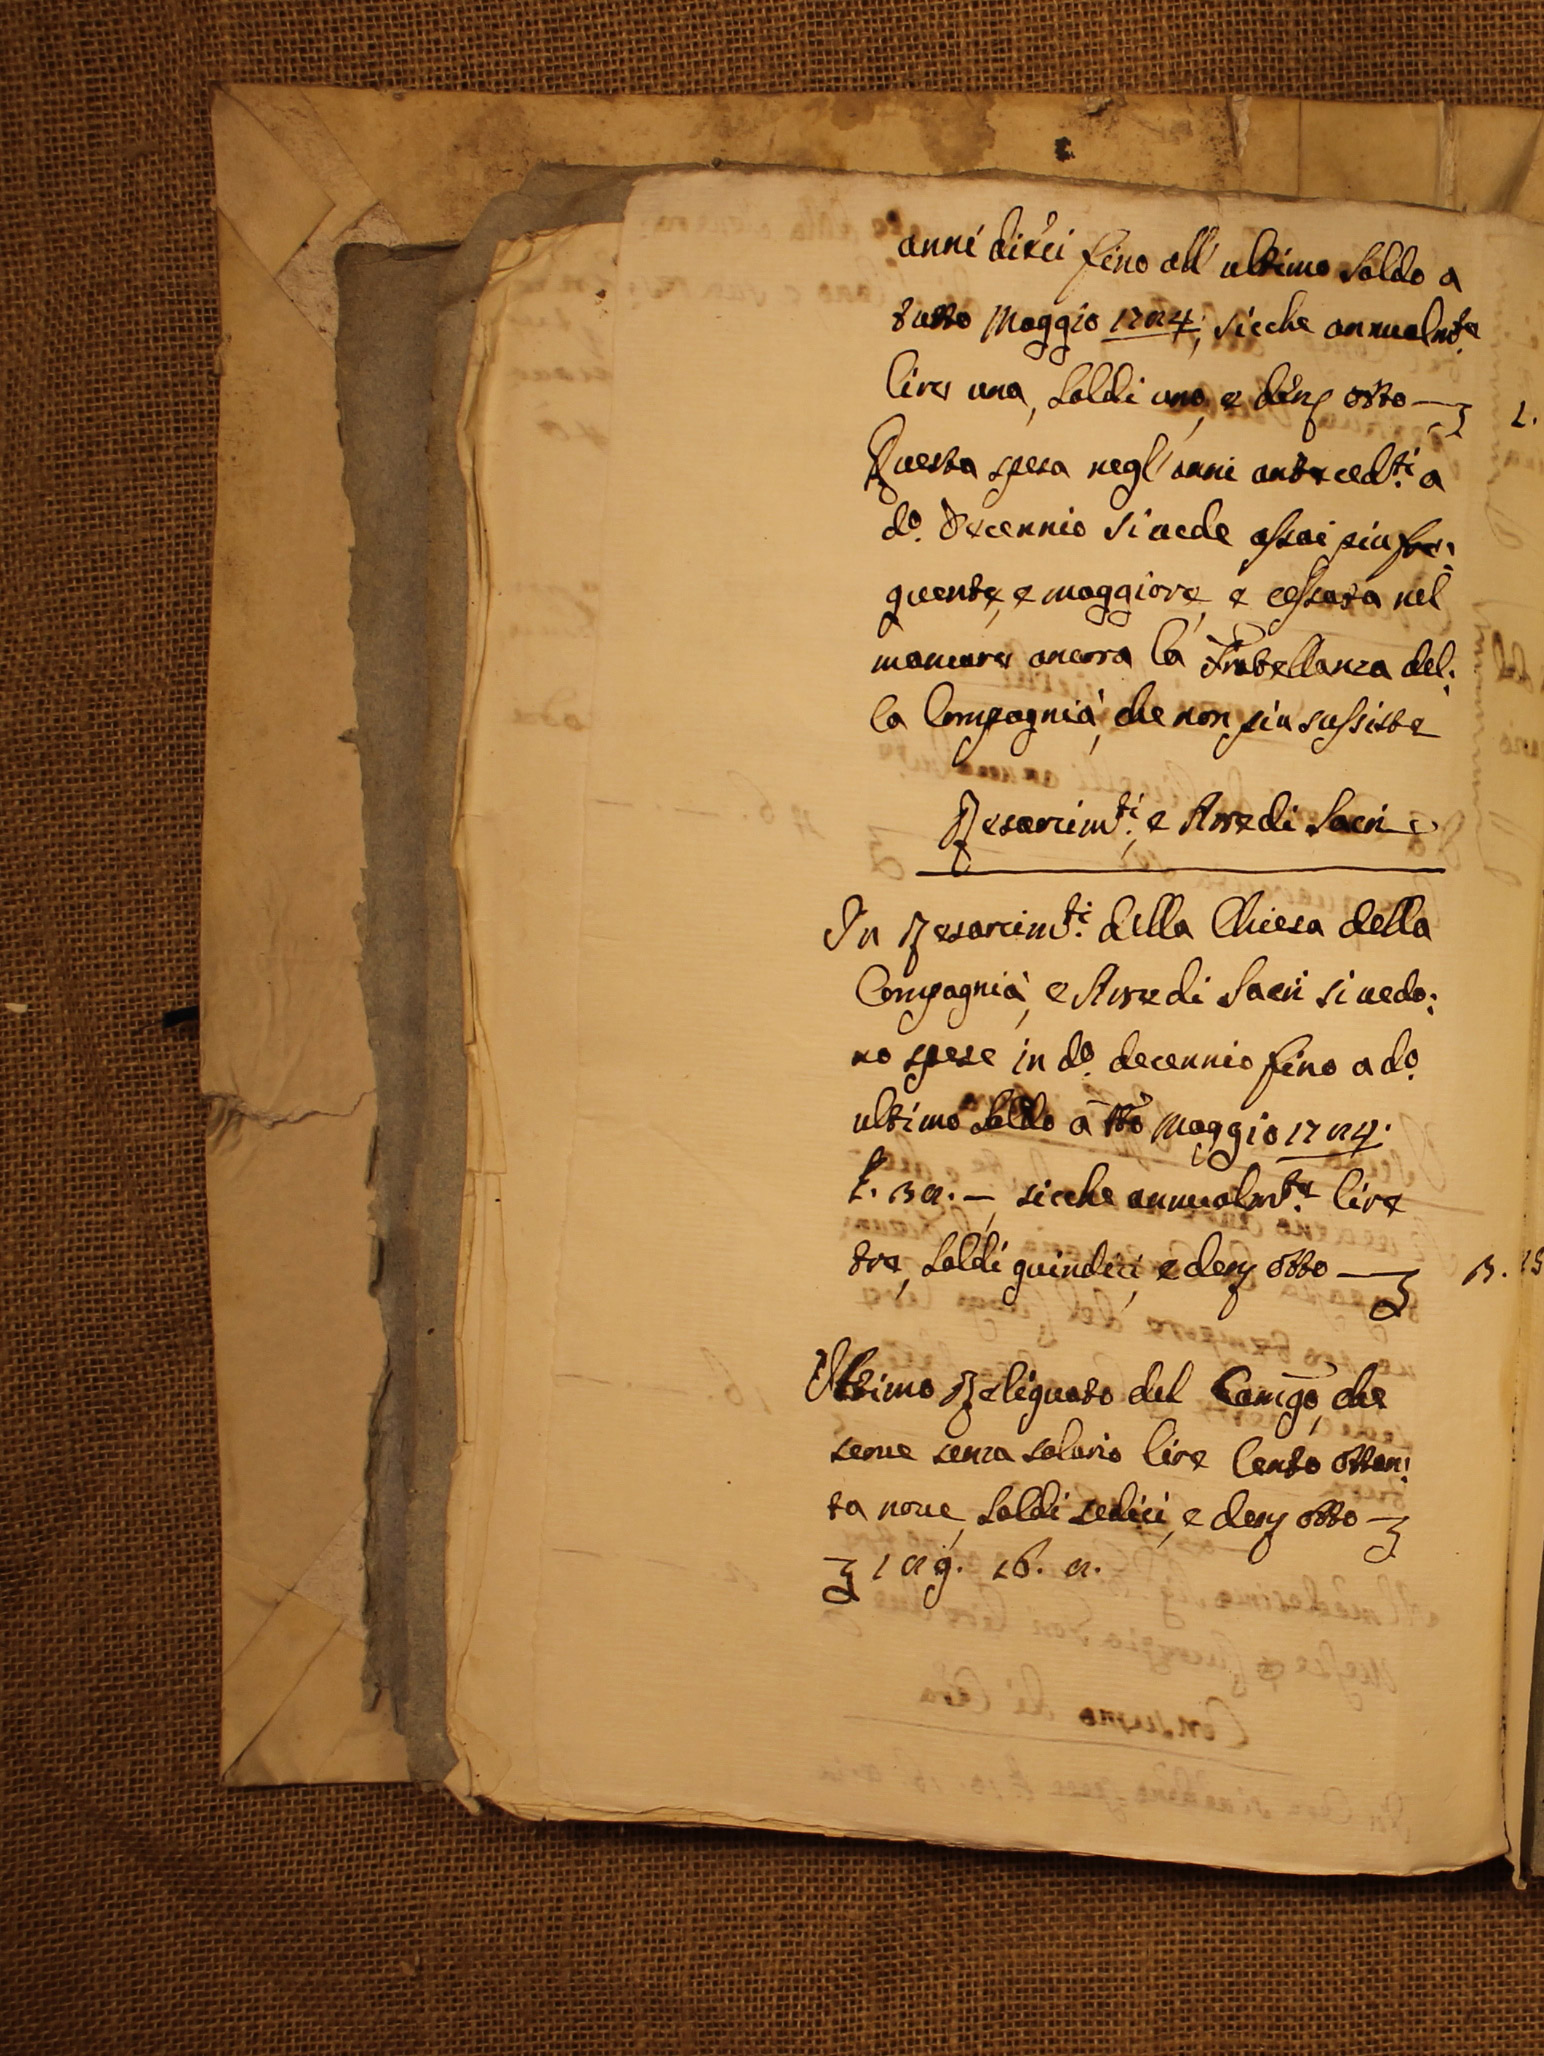 anni dieci fino all' ultimo Saldo a
tutto Maggio 1724; sicche annualm.te
lire una, Soldi uno, e den. otto — L.
Questa spesa negl'anni anteced.ti a
d.o Decennio si vede assai piu fre:
quente, e maggiore, e cessata nel
mancare ancora la Fratellanza del:
la Compagnia, che non piu sussiste
Resarcim.ti, e Arredi Sacri
In Resarcim.ti della Chiesa della
Compagnia, e Arredi Sacri si vedo:
no spese in d.o decennio fino a d.o
ultimo Saldo à tto Maggio 1724.
sicche annualm.te lire
tre, Soldi quindici, e den. otto — 3. 15
Ultimo Reliquato del Camgo, che
serve senza salario lire Cento ottan:
ta nove, Soldi sedici, e den. otto —
16.